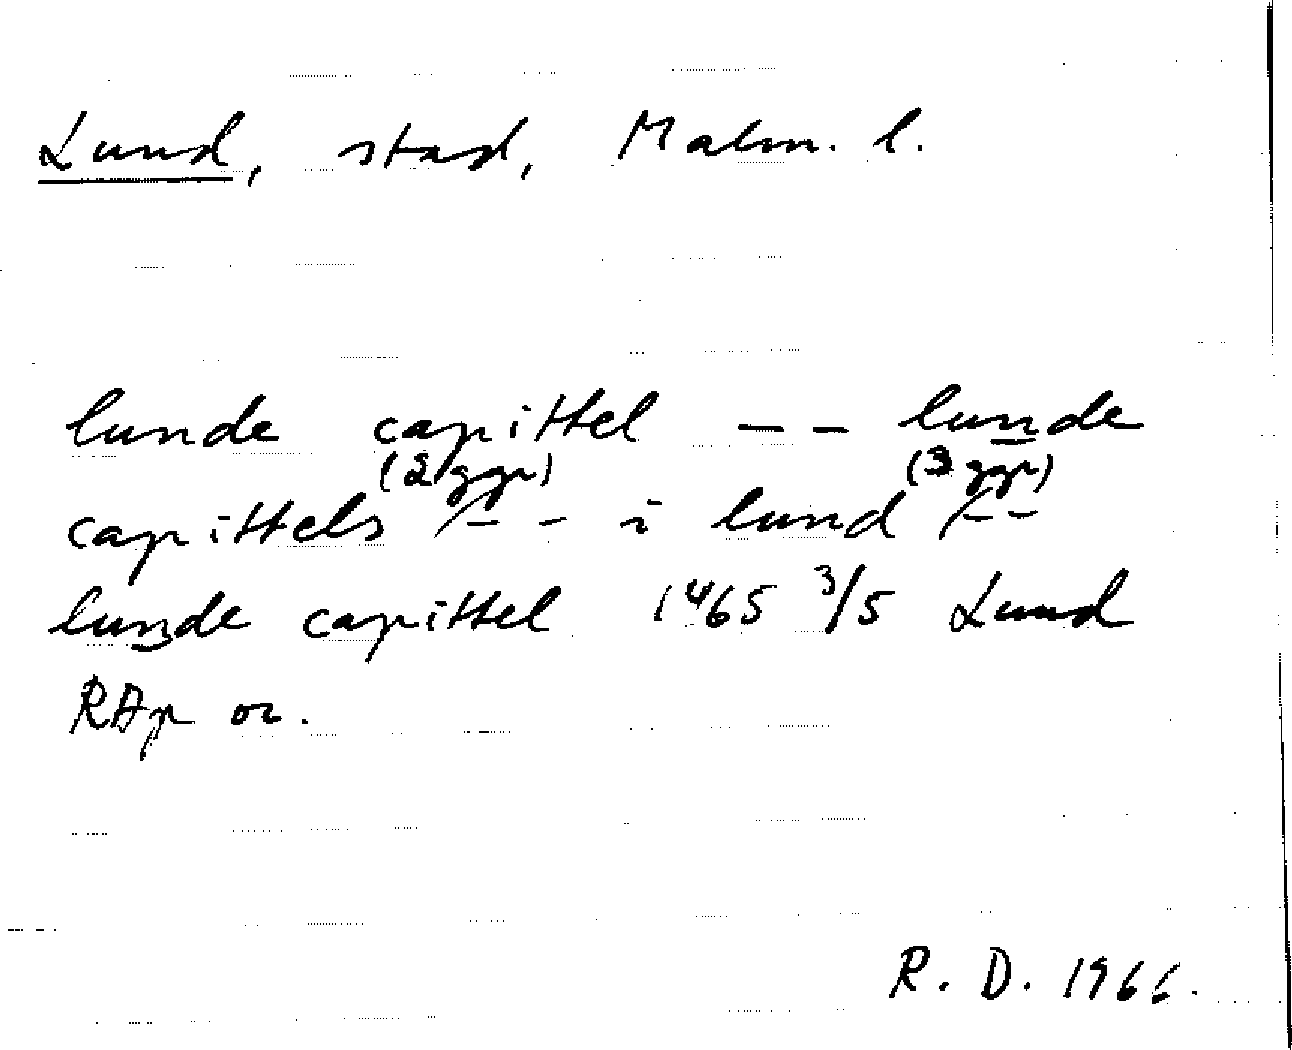 Lund, stad, Malm. l.
lunde capittel -- lunde
(2 ggr) (3 ggr)
capittels -- i lund --
lunde capittel 1465 3/5 Lund
RAp or.
R. D. 1966.